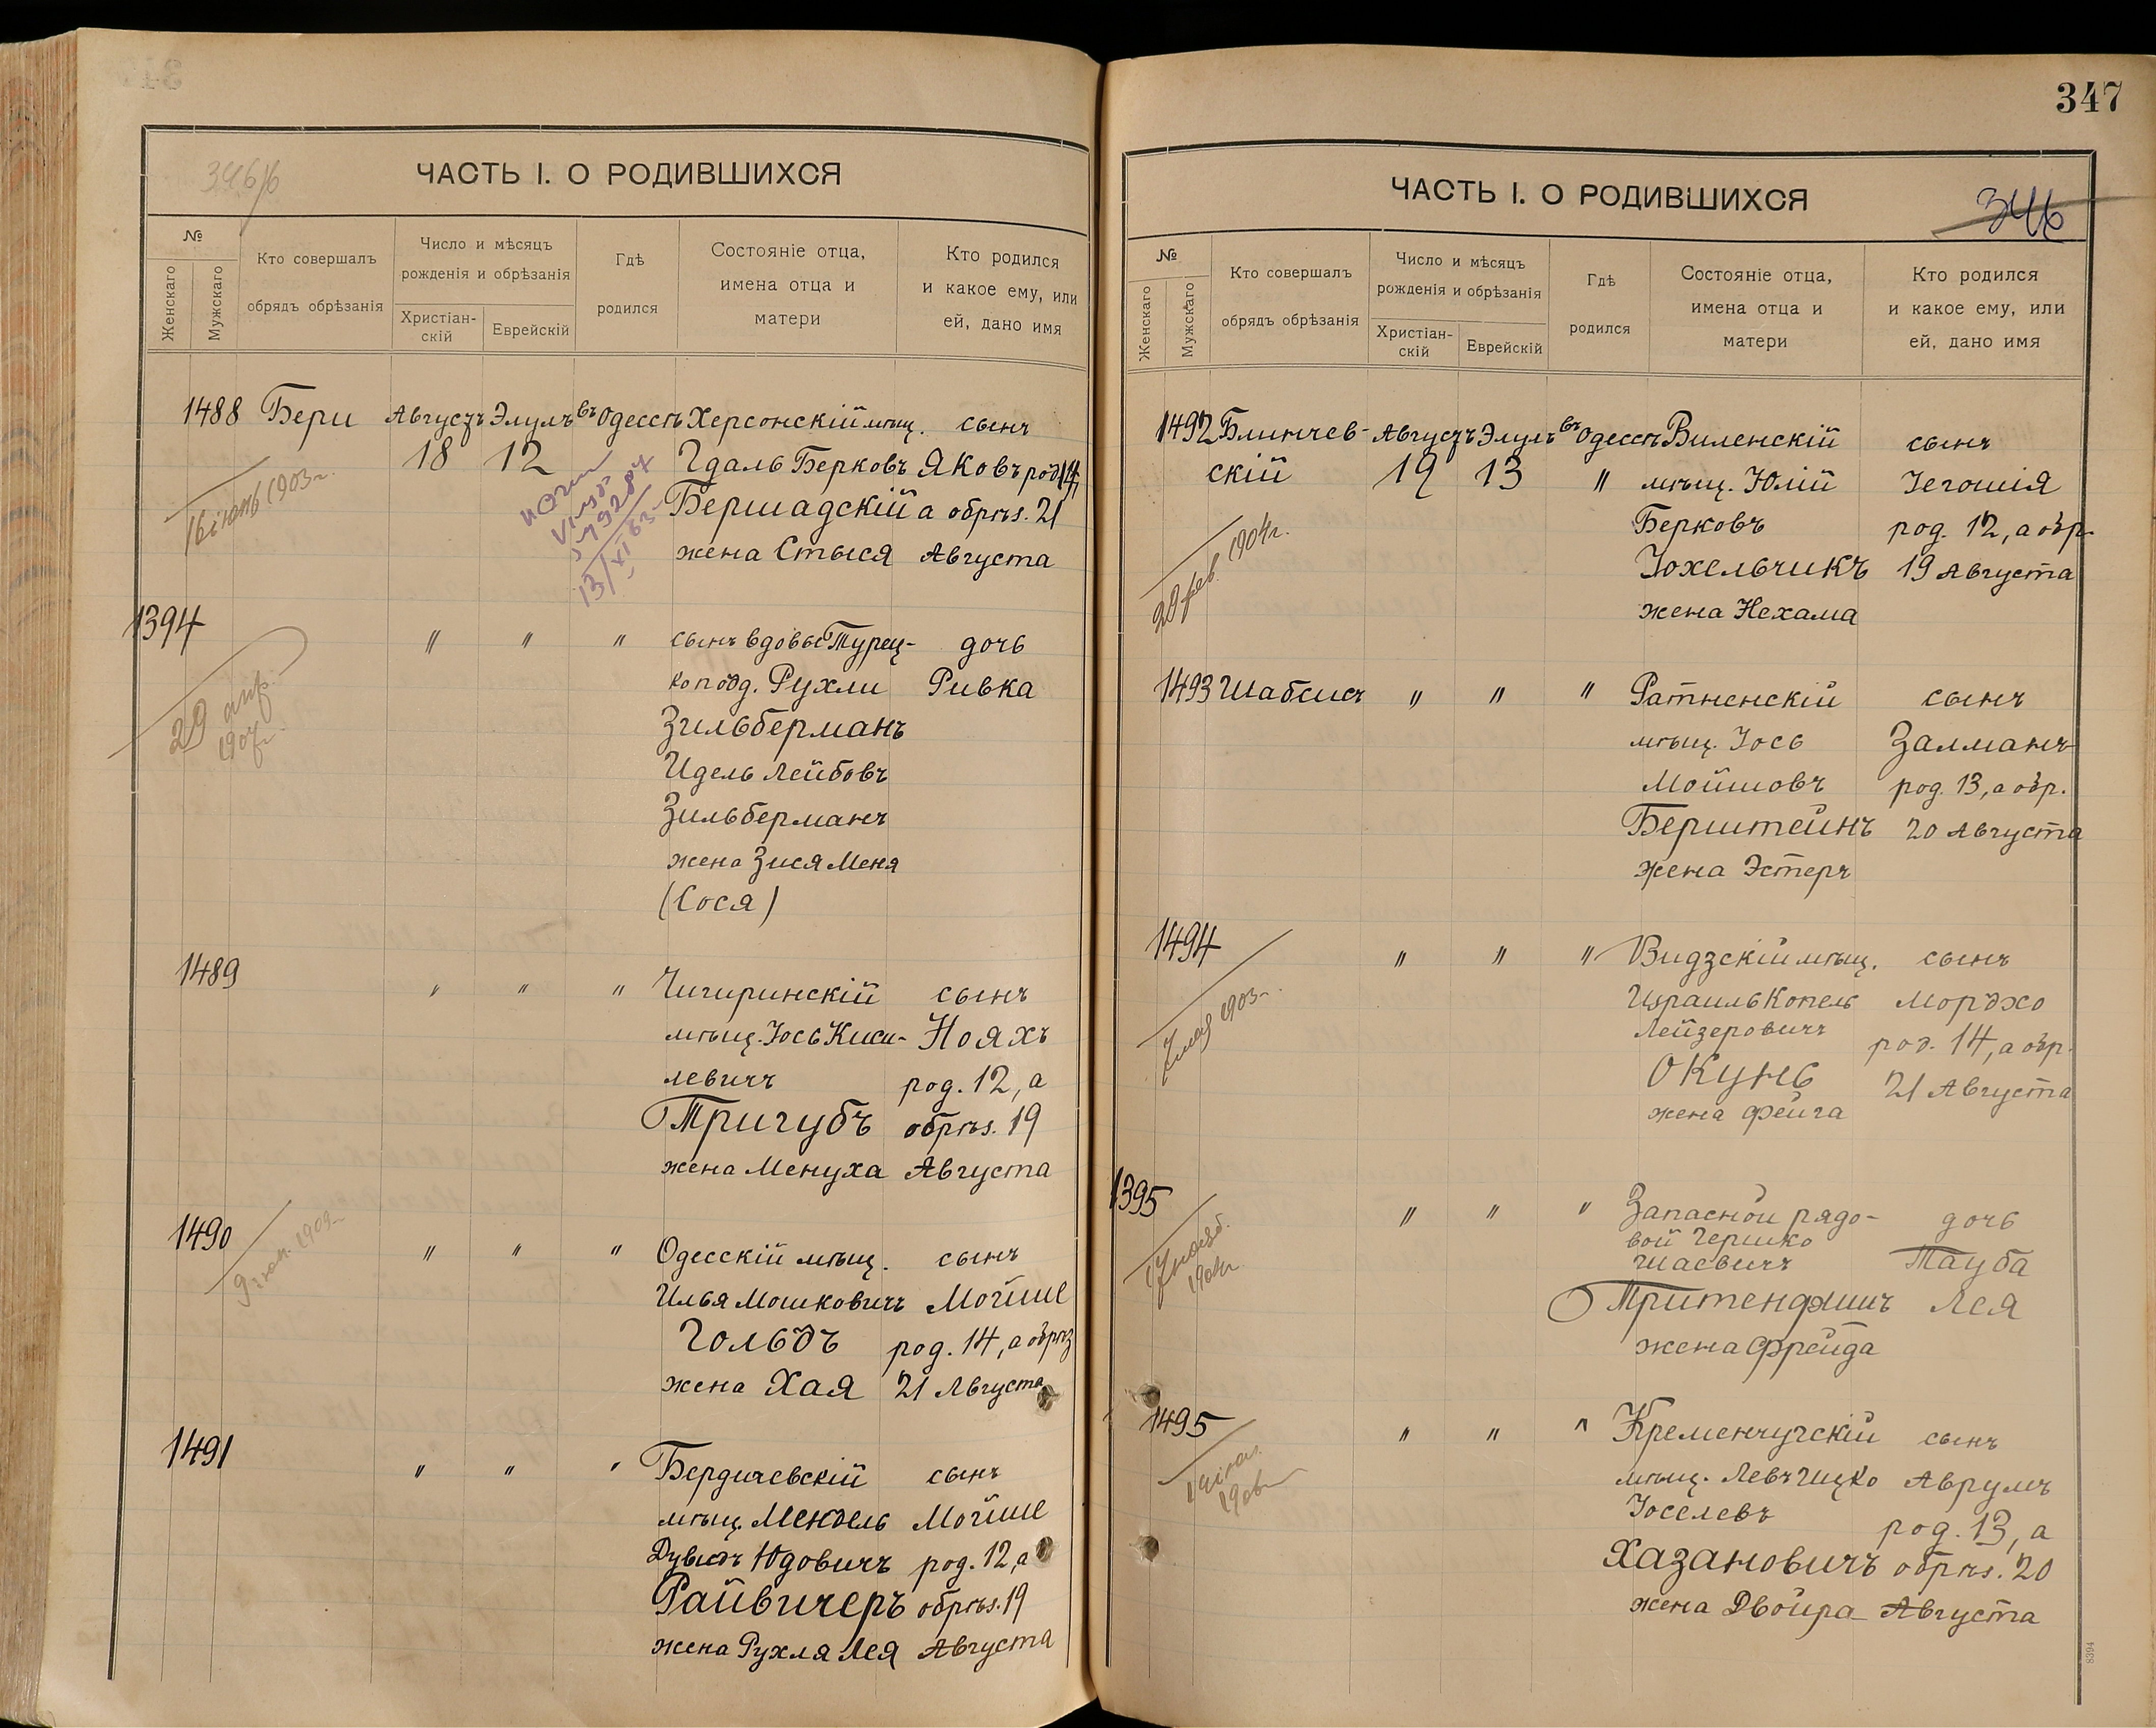 346/б
ЧАСТЬ I. О РОДИВШИХСЯ
№
Женскаго
Мужскаго
Кто совершалъ
обрядъ обрѣзанія
Число и мѣсяцъ
рожденія и обрѣзанія
Христіан-
скій
Еврейскій
Гдѣ
родился
Состояніе отца,
имена отца и
матери
Кто родился
и какое ему, или
ей, дано имя
1488 Бери Августъ Элулъ въ Одессѣ Херсонскій мѣщ. сынъ
18 12 Гдаль Берковъ Яковъ род. 14,
Бершадскій а обрѣз. 21
жена Стыся Августа
16 іюнь 1903 г.
13/XI 63
1394 " " " сынъ вдовы Турец-  дочь
ко подд. Рухли Ривка
Зильберманъ
Идель Лейбовъ
Зильберманъ
жена Зися Меня
(Сося)
29 апр.
1907 г.
1489 " " " Чигиринскій сынъ
мѣщ. Іось Киси- Нояхъ
левичъ род. 12, а
Тригубъ обрѣз. 19
жена Менуха Августа
1490 " " " Одесскій мѣщ. сынъ
Илья Мошковичъ Мойше
Гольдъ род. 14, а обрѣз
жена Хая 21 Августа
1909
1491 " " " Бердичевскій сынъ
мѣщ. Мендель Мойше
Дувидъ Юдовичъ род. 12, а
Райвичеръ обрѣз. 19
жена Рухля Лея Августа
347
ЧАСТЬ I. О РОДИВШИХСЯ
346
№
Женскаго
Мужскаго
Кто совершалъ
обрядъ обрѣзанія
Число и мѣсяцъ
рожденія и обрѣзанія
Христіан-
скій
Еврейскій
Гдѣ
родился
Состояніе отца,
имена отца и
матери
Кто родился
и какое ему, или
ей, дано имя
1492 Блинчев- Августъ Элулъ въ Одессѣ Виленскій сынъ
скій 19 13 " мѣщ. Юлій Іегошія
Берковъ род. 12, а обр.
Іохельчикъ 19 Августа
жена Нехама
20 фев. 1904 г.
1493 Шабсисъ " " " Ратненскій сынъ
мѣщ. Іось Залманъ
Мойшовъ род. 13, а обр.
Берштейнъ 20 Августа
жена Эстеръ
1494 " " " Видзскій мѣщ. сынъ
Израиль Копель Мордхо
Лейзеровичъ род. 14, а обр.
Окунь 21 Августа
жена Фейга
7 мая 1903
1395 " " " Запасной рядо- дочь
вой Гершко
Шаевичъ Тауба
Тритенфишъ Лея
жена Фрейда
1495 " " " Кременчугскій сынъ
мѣщ. Левъ Ицко Аврумъ
Іоселевъ род. 13, а
Хазановичъ обрѣз. 20
жена Двойра Августа
8394